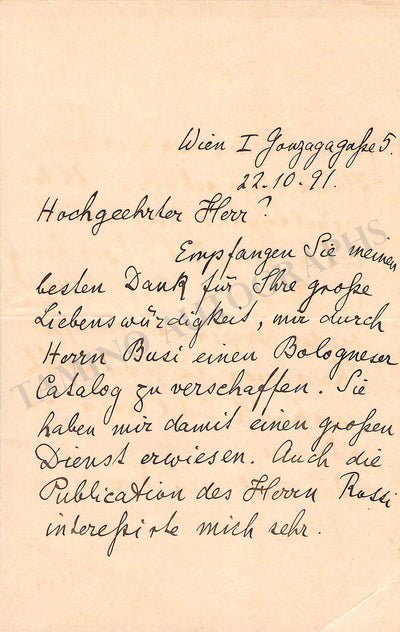 Wien I Gonzagagaße 5.
22.10.91.
Hochgeehrter Herr!
Empfangen Sie meinen
besten Dank für Ihre große
Liebenswürdigkeit, mir durch
Herrn Busi einen Bologneser
Catalog zu verschaffen. Sie
haben mir damit einen großen
Dienst erwiesen. Auch die
Publication des Herrn Rossi
intereßirte mich sehr.
TAMINO AUTOGRAPHS